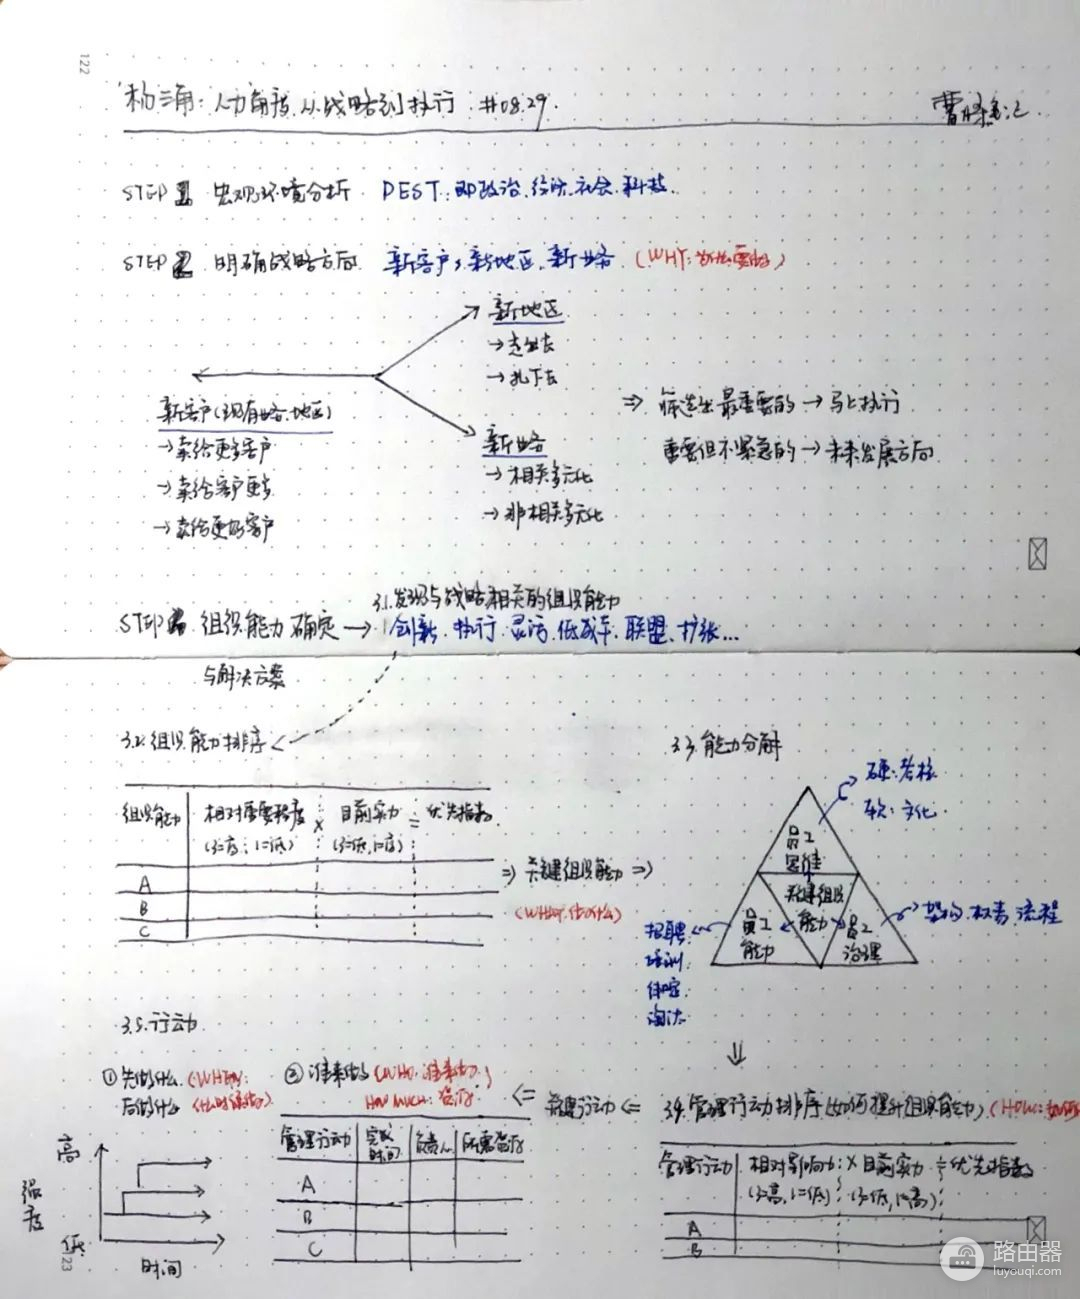 122
杨三角：人力角度，从战略到执行 #08.29.
STEP 1 宏观环境分析 PEST：即政治、经济、社会、科技.
STEP 2 明确战略方向 新客户、新地区、新业务 (WHY：为什么要做)
新地区
→走出去
→扎下去
新客户(现有业务、地区)
→卖给更多客户
→卖给客户更多
→卖给更好客户
新业务
→相关多元化
→非相关多元化
⇒ 筛选出最重要的→马上执行
重要但不紧急的→未来发展方向
3.1.发现与战略相关的组织能力
STEP 3 组织能力确定→创新、执行、灵活、低成本、联盟、扩张...
与解决方案
3.2.组织能力排序
组织能力 相对重要程度 × 目前实力 = 优先指数
(3=高；1=低) (3=低,1=高)
A
B
C
⇒ 关键组织能力 ⇒
(WHAT：做什么)
3.3.能力分解
硬：考核
软：文化
员工
思维
关键组织
能力
员工
能力
员工
治理
架构、权责、流程
招聘
培训
保留
淘汰
⇓
3.4.管理行动排序(如何提升组织能力)(HOW：如何
管理行动 相对影响力 × 目前实力 = 优先指数
(3=高,1=低) (3=低,1=高)
A
B
⇐ 关键行动 ⇐
3.5.行动
①先做什么 (WHEN：
后做什么 什么时候做)
高
强度
低
时间
②谁来做 (WHO：谁来做
HOW MUCH：资源)
管理行动 完成时间 负责人 所需资源
A
B
C
123
路由器
luyouqi.com